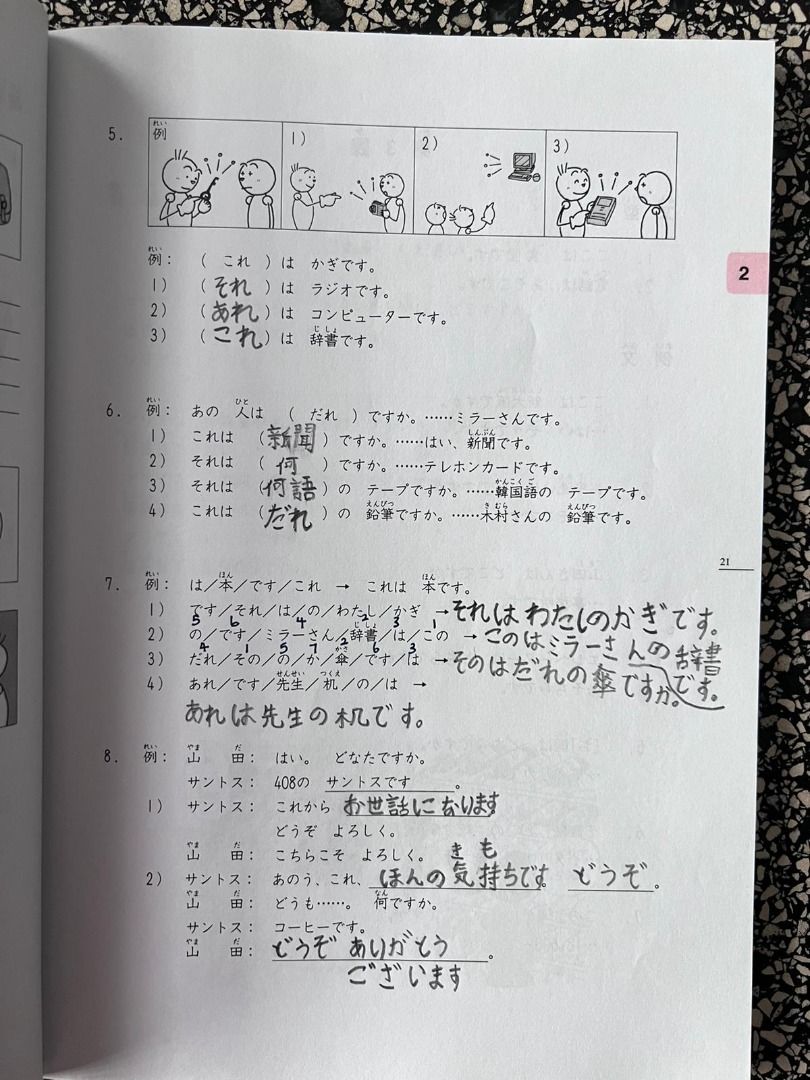 5. 例 1) 2) 3)
例： （ これ ）は かぎです。
1) （それ）は ラジオです。
2) （あれ）は コンピューターです。
3) （これ）は 辞書です。
2
6. 例： あの 人は （ だれ ）ですか。……ミラーさんです。
1) これは （新聞）ですか。……はい、新聞です。
2) それは （何）ですか。……テレホンカードです。
3) それは （何語）の テープですか。……韓国語の テープです。
4) これは （だれ）の 鉛筆ですか。……木村さんの 鉛筆です。
21
7. 例： は／本／です／これ → これは 本です。
1) です／それ／は／の／わたし／かぎ →それは わたしのかぎです。
5 6 4 2 3 1
2) の／です／ミラーさん／辞書／は／この → このはミラーさんの辞書です。
4 1 5 7 2 6 3
3) だれ／その／の／か／傘／です／は →そのはだれの傘ですか。
4) あれ／です／先生／机／の／は →
あれは先生の机です。
8. 例： 山田： はい。 どなたですか。
サントス： 408の サントスです。
1) サントス： これから お世話になります
どうぞ よろしく。
山田： こちらこそ よろしく。
きも
2) サントス： あのう、これ、ほんの気持ちです。 どうぞ。
山田： どうも……。 何ですか。
サントス： コーヒーです。
山田： どうぞ ありがとう。
ございます